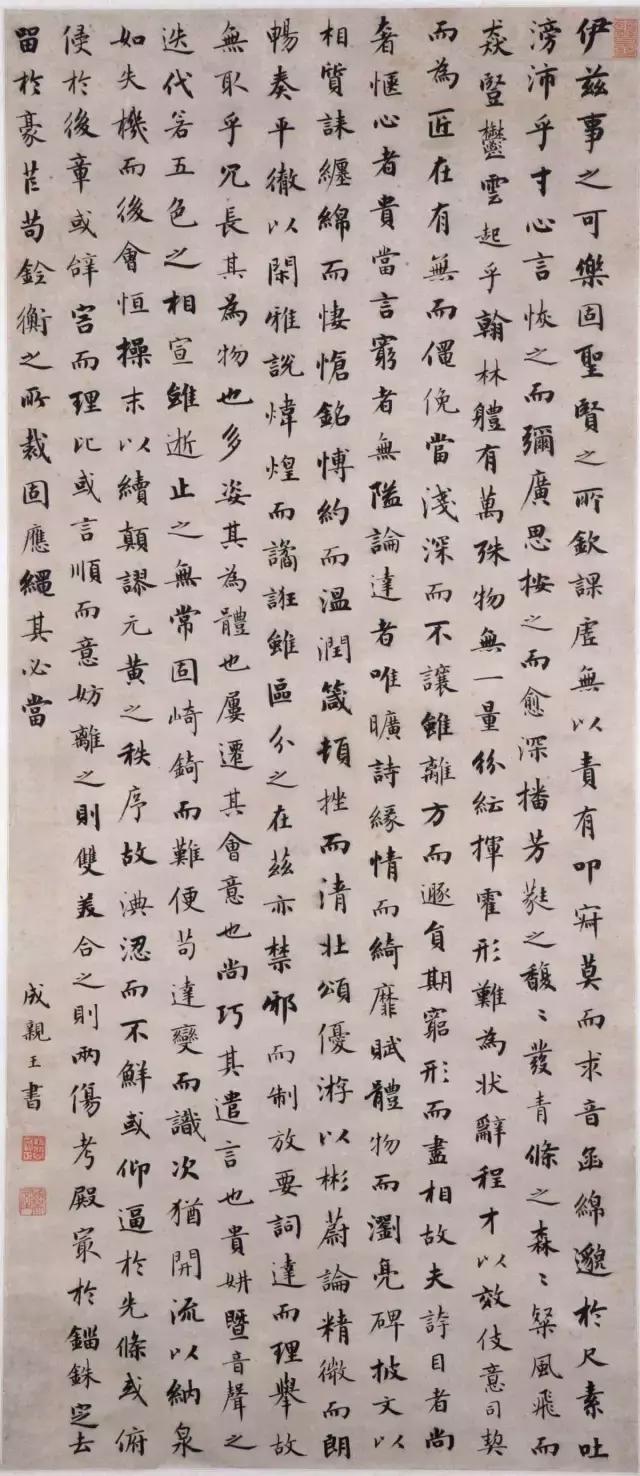 伊茲事之可樂固聖賢之所欽課虛無以責有叩寂莫而求音函綿邈於尺素吐
滂沛乎寸心言恢之而彌廣思按之而愈深播芳蕤之馥〻發青條之森〻粲風飛而
猋豎鬱雲起乎翰林體有萬殊物無一量紛紜揮霍形難為狀辭程才以效伎意司契
而為匠在有無而僶俛當淺深而不讓雖離方而遯負期窮形而盡相故夫誇目者尚
奢愜心者貴當言窮者無隘論達者唯曠詩緣情而綺靡賦體物而瀏亮碑披文以
相質誄纏綿而悽愴銘博約而溫潤箴頓挫而清壯頌優游以彬蔚論精微而朗
暢奏平徹以閑雅說煒煌而譎誑雖區分之在茲亦禁邪而制放要詞達而理舉故
無取乎冗長其為物也多姿其為體也屢遷其會意也尚巧其遣言也貴妍暨音聲之
迭代若五色之相宣雖逝止之無常固崎錡而難便苟達變而識次猶開流以納泉
如失機而後會恒操末以續顛謬元黃之秩序故淟涊而不鮮或仰逼於先條或俯
侵於後章或辭害而理比或言順而意妨離之則雙美合之則兩傷考殿最於錙銖定去
留於豪芒苟銓衡之所裁固應繩其必當
成親王書